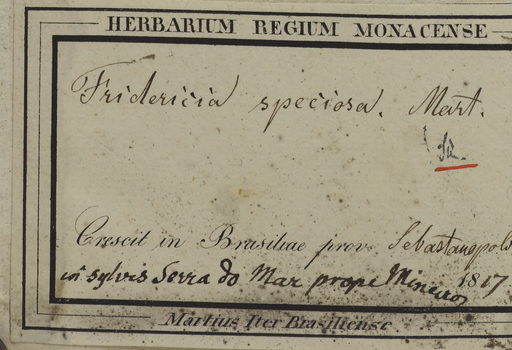 HERBARIUM REGIUM MONACENSE
Fridericia speciosa. Mart.
Crescit in Brasiliae prov. Sebastianopol
in sylvis Serra do Mar prope 1817
Martius Iter Brasiliense